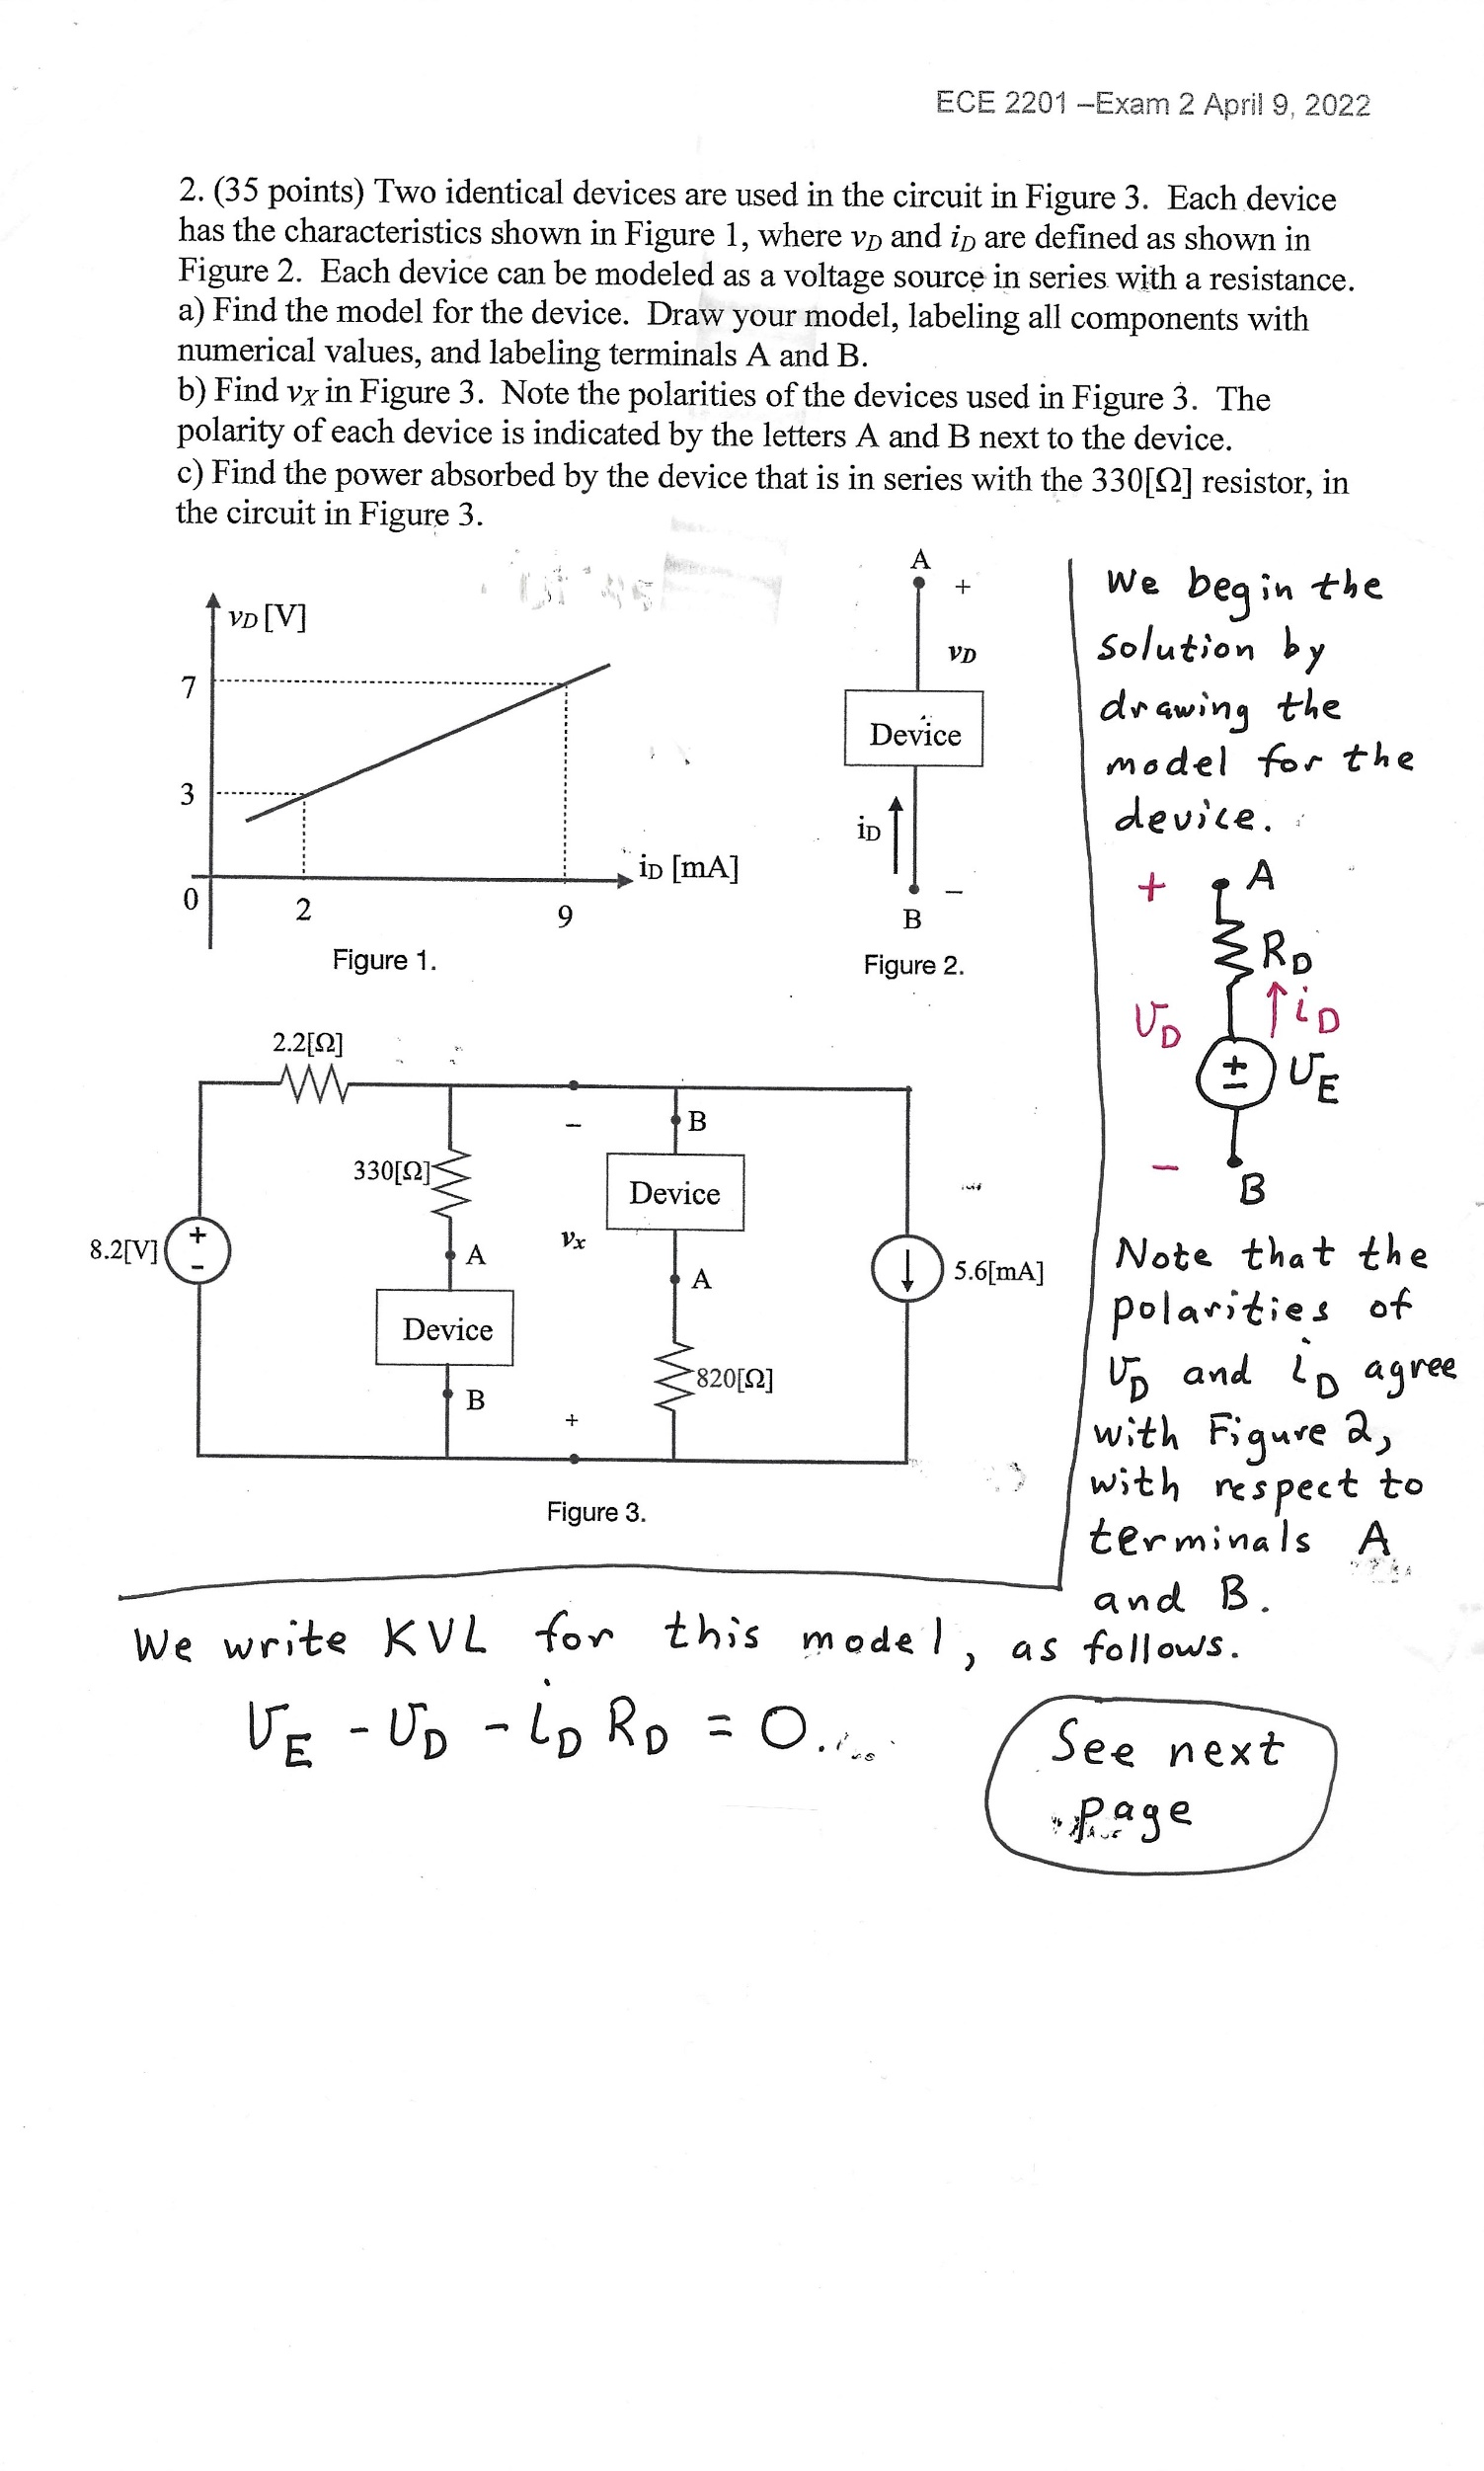 ECE 2201 –Exam 2 April 9, 2022
2. (35 points) Two identical devices are used in the circuit in Figure 3. Each device
has the characteristics shown in Figure 1, where vD and iD are defined as shown in
Figure 2. Each device can be modeled as a voltage source in series with a resistance.
a) Find the model for the device. Draw your model, labeling all components with
numerical values, and labeling terminals A and B.
b) Find vX in Figure 3. Note the polarities of the devices used in Figure 3. The
polarity of each device is indicated by the letters A and B next to the device.
c) Find the power absorbed by the device that is in series with the 330[Ω] resistor, in
the circuit in Figure 3.
vD [V]
7
3
0
2
9
iD [mA]
Figure 1.
A
+
vD
Device
iD
–
B
Figure 2.
We begin the
solution by
drawing the
model for the
device.
+
A
RD
vD
iD
+
–
vE
–
B
Note that the
polarities of
vD and iD agree
with Figure 2,
with respect to
terminals A
and B.
2.2[Ω]
330[Ω]
8.2[V]
+
-
A
Device
B
–
vx
+
B
Device
A
820[Ω]
5.6[mA]
Figure 3.
We write KVL for this model, as follows.
vE - vD - iD RD = 0.
See next
page